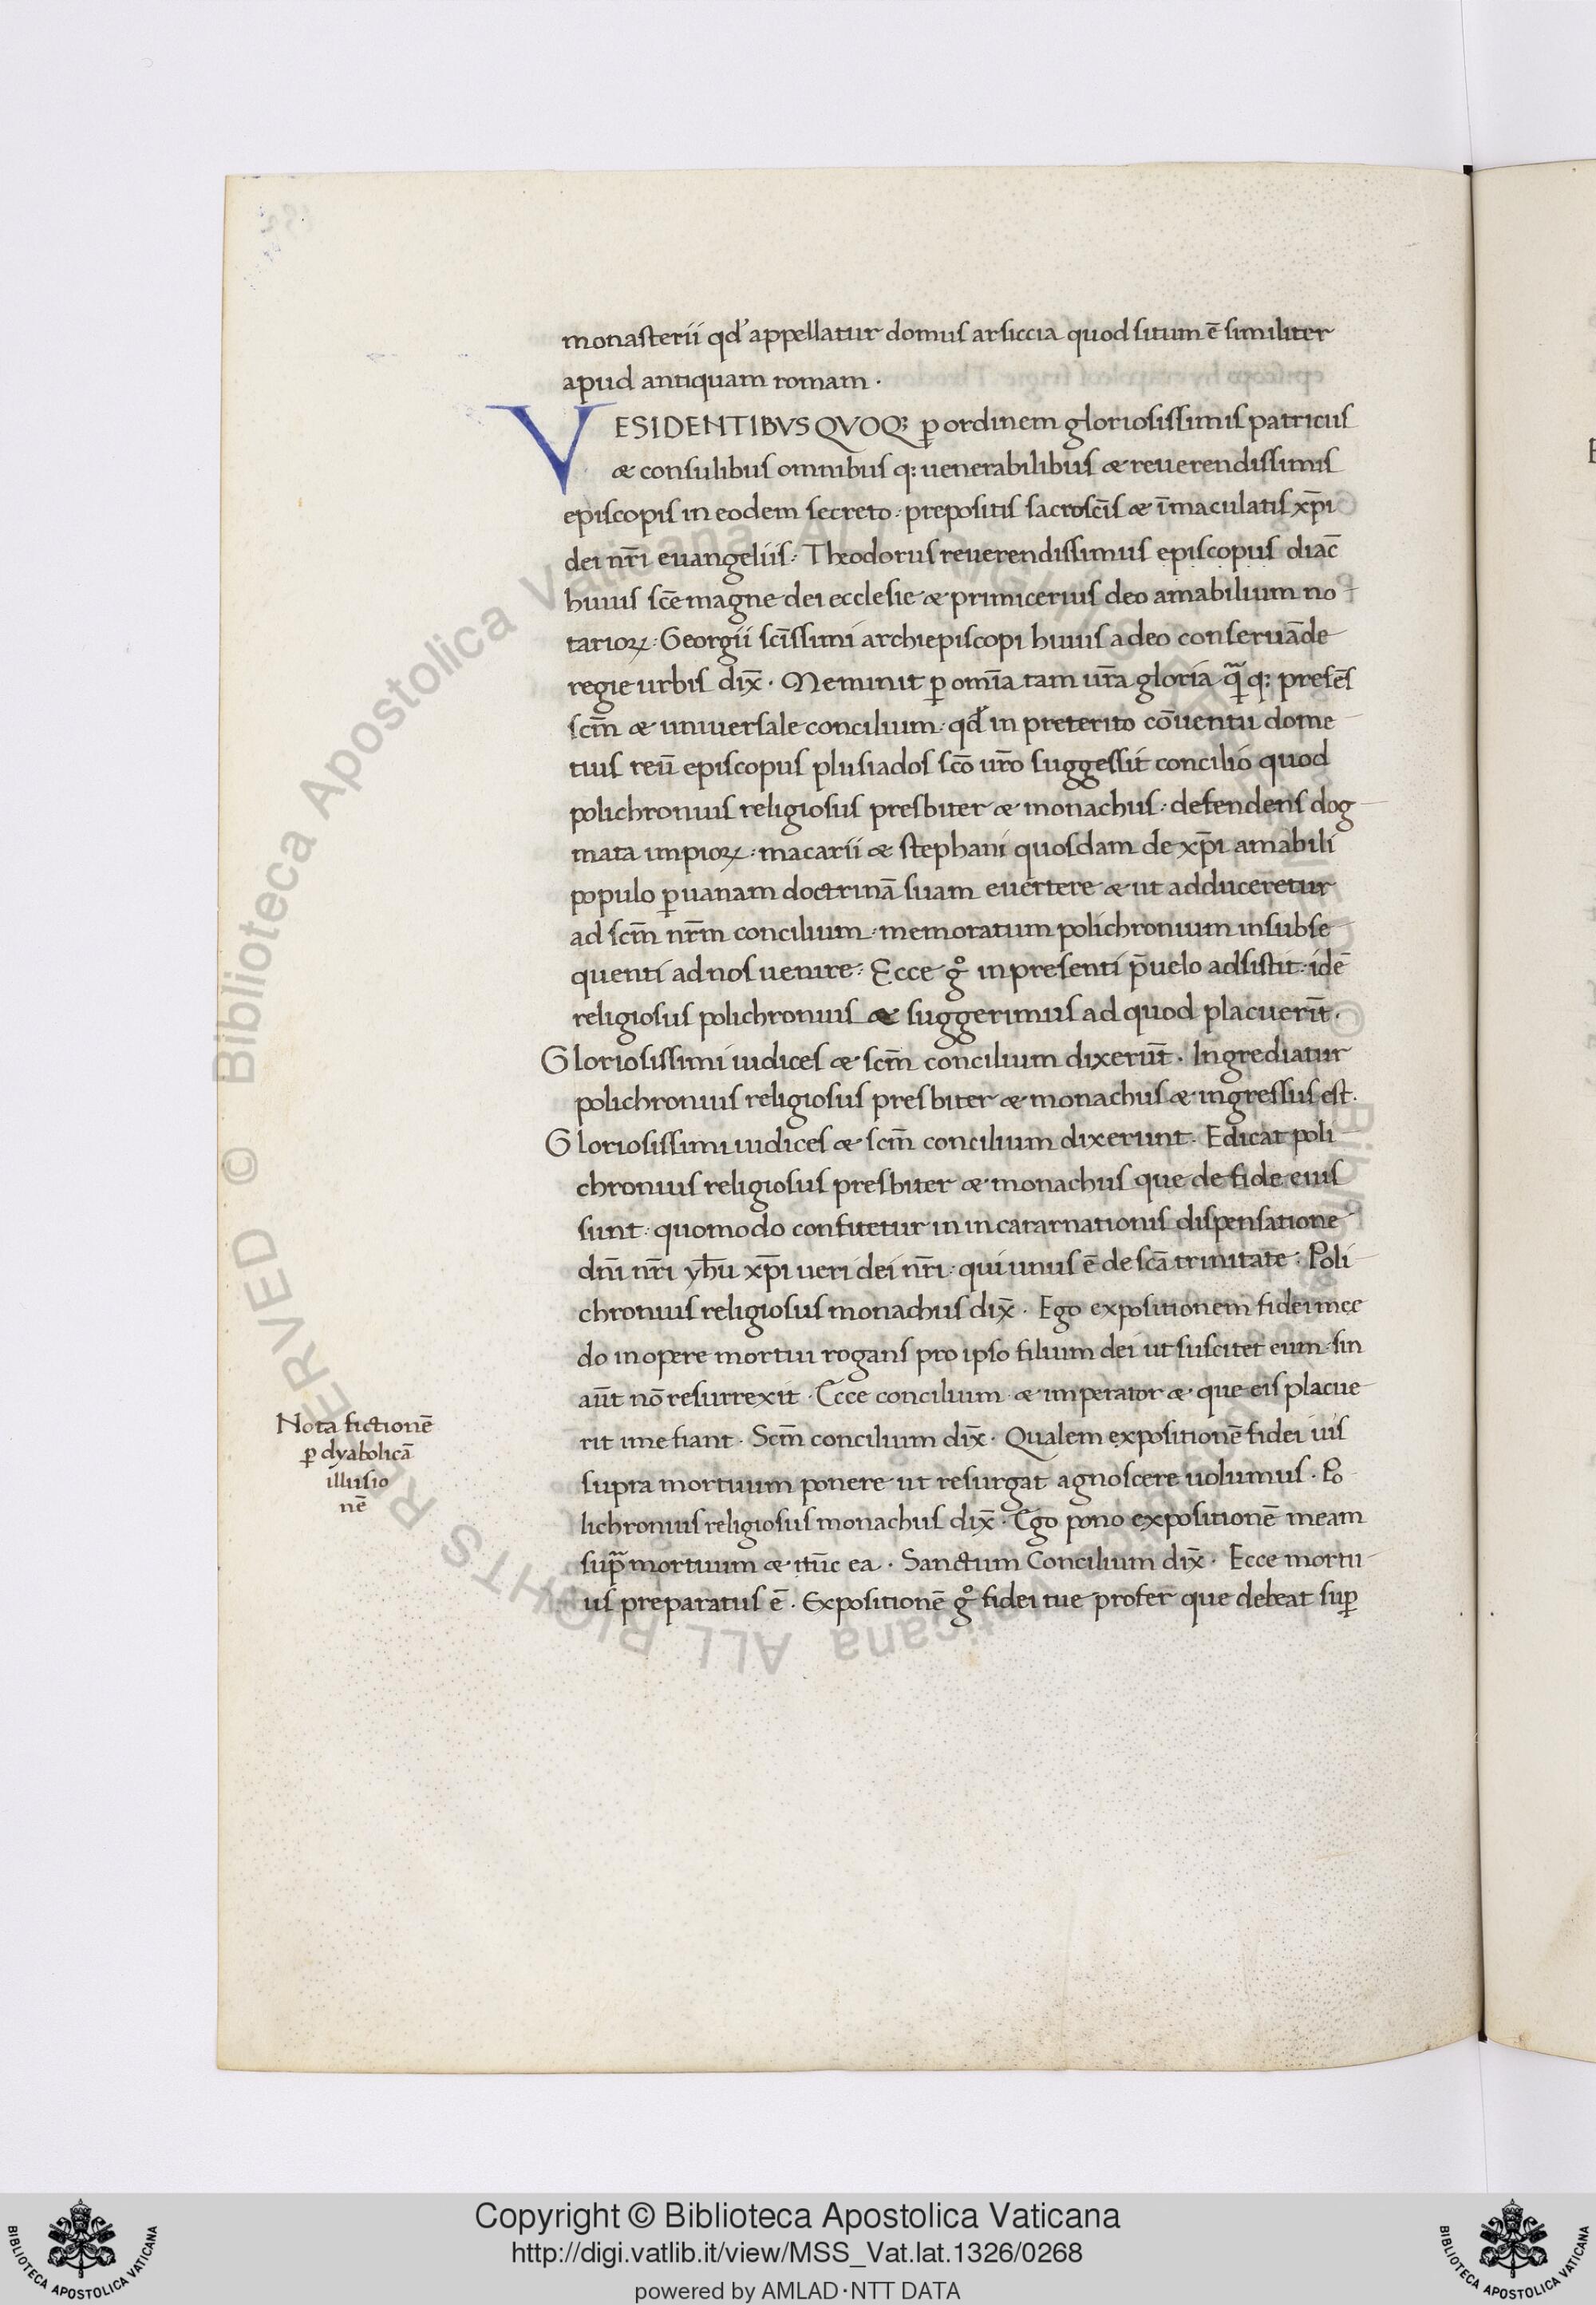 monasterii qd̕ appellatur domus arsiccia quod situm ē similiter
apud antiquam romam .
VESIDENTIBVS QVOQ; ꝑ ordinem gloriosissimis patricus
æ consulibus omnibus q; uenerabilibus æ reuerendissimis
episcopis in eodem secreto : prepositis sacroscīs æ īmaculatis xp̄i
dei nr̄i euangeliis : Theodorus reuerendissimus episcopus diac̄
huius sc̄e magne dei ecclesie æ primicerius deo amabilium no
tarioꝝ : Georgii scīssimi archiepiscopi huius a deo conseruāde
regie urbis dix̄ . Meminit ꝑ omīa tam ur̄a gloria q̄ q; presēs
scm̄ æ uniuersale concilium . qd̕ in preterito cōuentu dome
tius reū episcopus plusiados scō ur̄o suggessit concilio quod
polichronius religiosus presbiter æ monachus : defendens dog
mata impioꝝ : macarii æ stephani quosdam de xp̄i amabili
populo ꝑ uanam doctrinā suam euertere æ ut adduceretur
ad scm̄ nr̄m concilium : memoratum polichronium in subse
quenti ad nos uenire : Ecce gͦ in presenti p̄ uelo adsistit : idē
religiosus polichronius æ suggerimus ad quod placuerīt .
Gloriosissimi iudices æ scm̄ concilium dixerūt . Ingrediatur
polichronius religiosus presbiter æ monachus æ ingressus est .
Gloriosissimi iudices æ scm̄ concilium dixerunt . Edicat poli
chronius religiosus presbiter æ monachus que de fide eius
sunt : quomodo confitetur in incatarnationis dispensatione
dn̄i nr̄i yh̄u xp̄i ueri dei nr̄i : qui unus ē de scā trinitate . Poli
chronius religiosus monachus dix̄ . Ego expositionem fidei mee
do in opere mortui rogans pro ipso filium dei ut suscitet eum : sin
aūt nō resurrexit . Ecce concilium æ imperator æ que eis placue
rit ime fiant . Scm̄ concilium dix̄ . Qualem expositionē fidei uis
supra mortuum ponere ut resurgat agnoscere uolumus . Po
lichronius religiosus monachus dix̄ . Ego pono expositionē meam
sup̄ mortuum æ itūc ea . Sanctum Concilium dix̄ . Ecce mortu
us preparatus ē . Expositionē gͦ fidei tue profer que debeat suꝑ
Nota fictionē
ꝑ dyabolicā
illusio
nē
© Biblioteca Apostolica Vaticana ALL RIGHTS RESERVED
Copyright © Biblioteca Apostolica Vaticana
http://digi.vatlib.it/view/MSS_Vat.lat.1326/0268
powered by AMLAD·NTT DATA
BIBLIOTECA APOSTOLICA VATICANA
BIBLIOTECA APOSTOLICA VATICANA